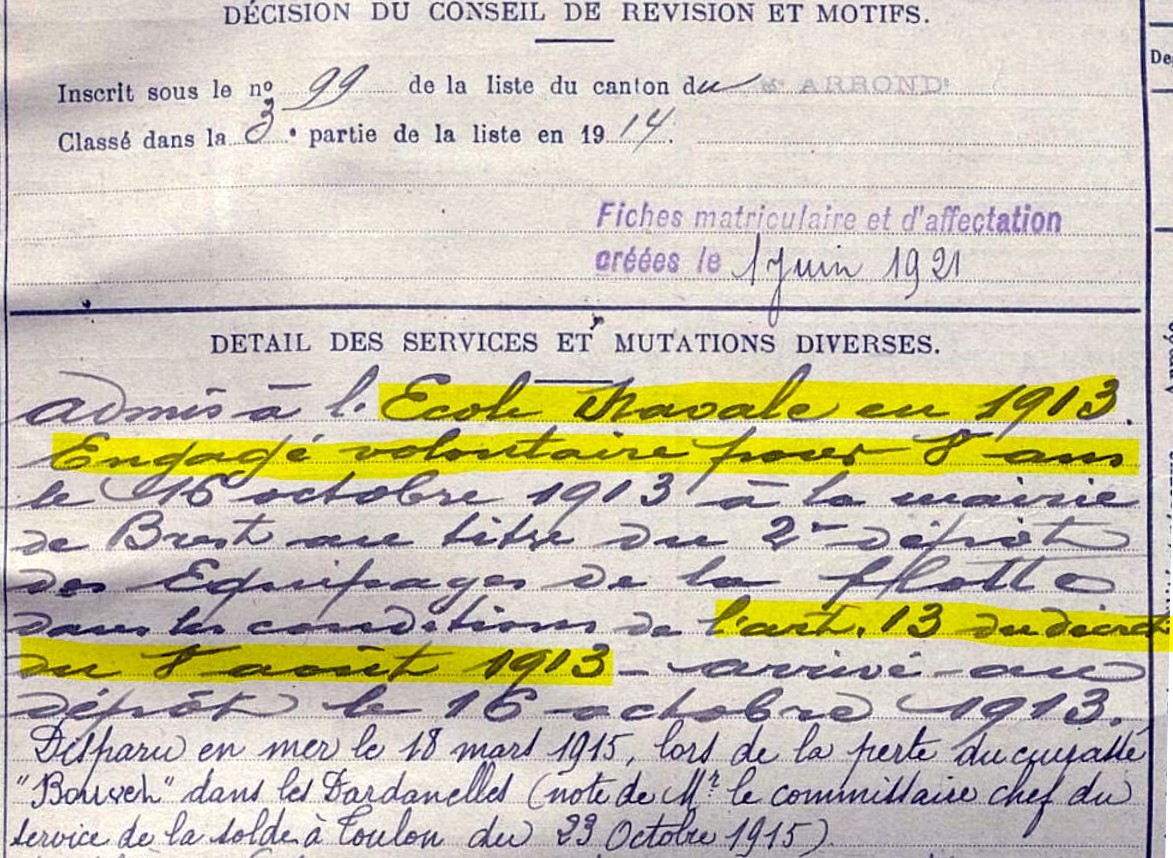 DÉCISION DU CONSEIL DE REVISION ET MOTIFS.
De
Inscrit sous le nº 99 de la liste du canton du ARROND
Classé dans la 3e partie de la liste en 1914.
Fiches matriculaire et d'affectation
créées le 1 juin 1921
DETAIL DES SERVICES ET MUTATIONS DIVERSES.
admis à l'Ecole Navale en 1913.
Engagé volontaire pour 8 ans
le 16 octobre 1913 à la mairie
de Brest au titre du 2e dépôt
des Equipages de la flotte
dans les conditions de l'art. 13 du décret
du 8 août 1913 - arrivé au
dépôt le 16 octobre 1913.
Disparu en mer le 18 mars 1915, lors de la perte du cuirassé
"Bouvet" dans les Dardanelles (note de Mr le commissaire chef du
service de la solde à Toulon du 23 Octobre 1915)